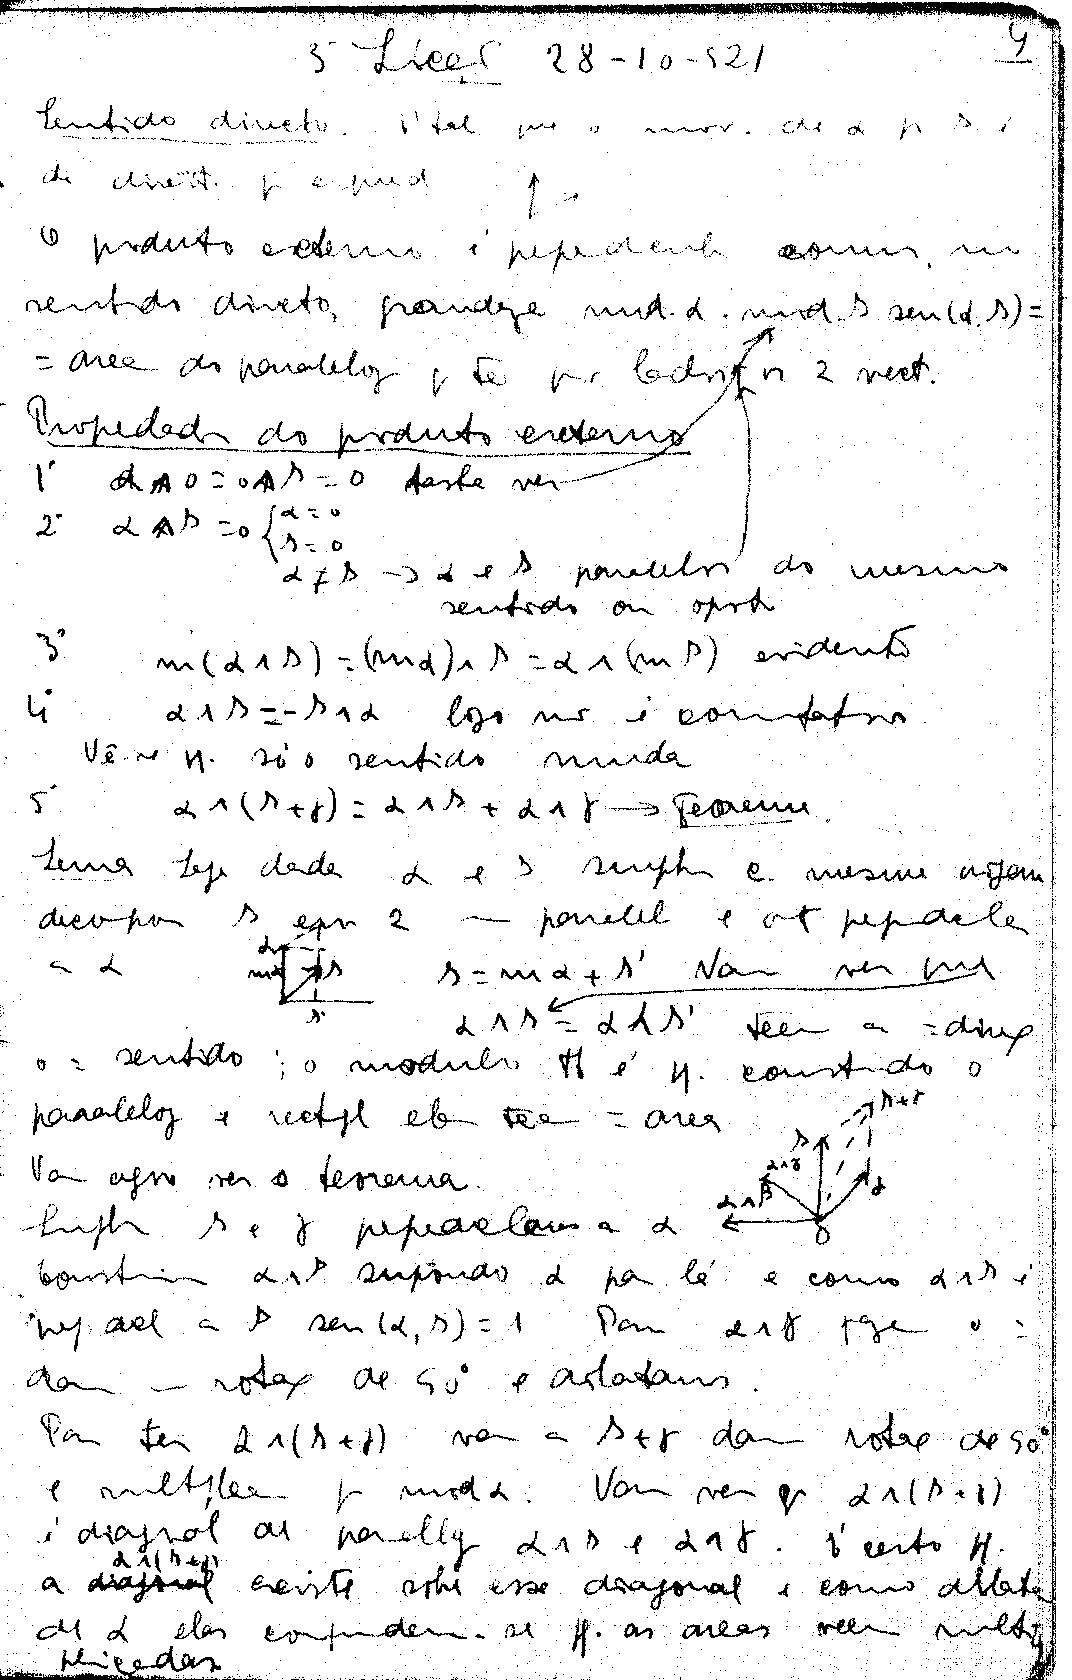 4
3ª Licç 28-10-921
Sentido directo. É tal que o mov. de α p β é
de direit. p esqued
O produto externo é pepedicula comum, no
sentido directo, grandeza mod. α . mod. β sen(α, β) =
= area do paralelog q te por lados os 2 vect.
Propiedades do produto externo
1º α ∧ 0 = 0 ∧ β = 0 basta ver
2º α ∧ β = 0 { α = 0
β = 0
α ≠ β → α e β paralelos do mesmo
sentido ou opost
3º m(α ∧ β) = (mα) ∧ β = α ∧ (mβ) evidente
4º α ∧ β = -β ∧ α logo não é comutativo
Vê-se q. só o sentido muda
5º α ∧ (β+γ) = α ∧ β + α ∧ γ → Teorema
Lema Seja dada α e β suph c. mesma origem
decompor β em 2 — paralel e out pepdicla
a α mα β β = mα + β' Vam ver que
β' α ∧ β = α ∧ β' teem a = direç
o = sentido ; o modulo tt é q. construido o
paralelog e rectgl eles teem = area
β+γ
Vam agora ver o teorema. α∧γ β γ
Suph β e γ pepediculares a α α∧β 0
Construim α ∧ β supondo α para lá e como α ∧ β é
pepdicl a β sen(α, β) = 1 Para α ∧ γ faze o =
dam — rotaç de 90° e dilatamos.
Para ter α ∧ (β+γ) vam a β+γ dam rotaç de 90°
e multiplicam p mod α. Vam ver q α ∧ (β+γ)
é diagonal do paralelg α ∧ β e α ∧ γ. É certo q.
α∧(β+γ)
a diagonal existe sobre essa diagonal e como dilata
de α elas confundem-se q. as areas veem multi
plicadas